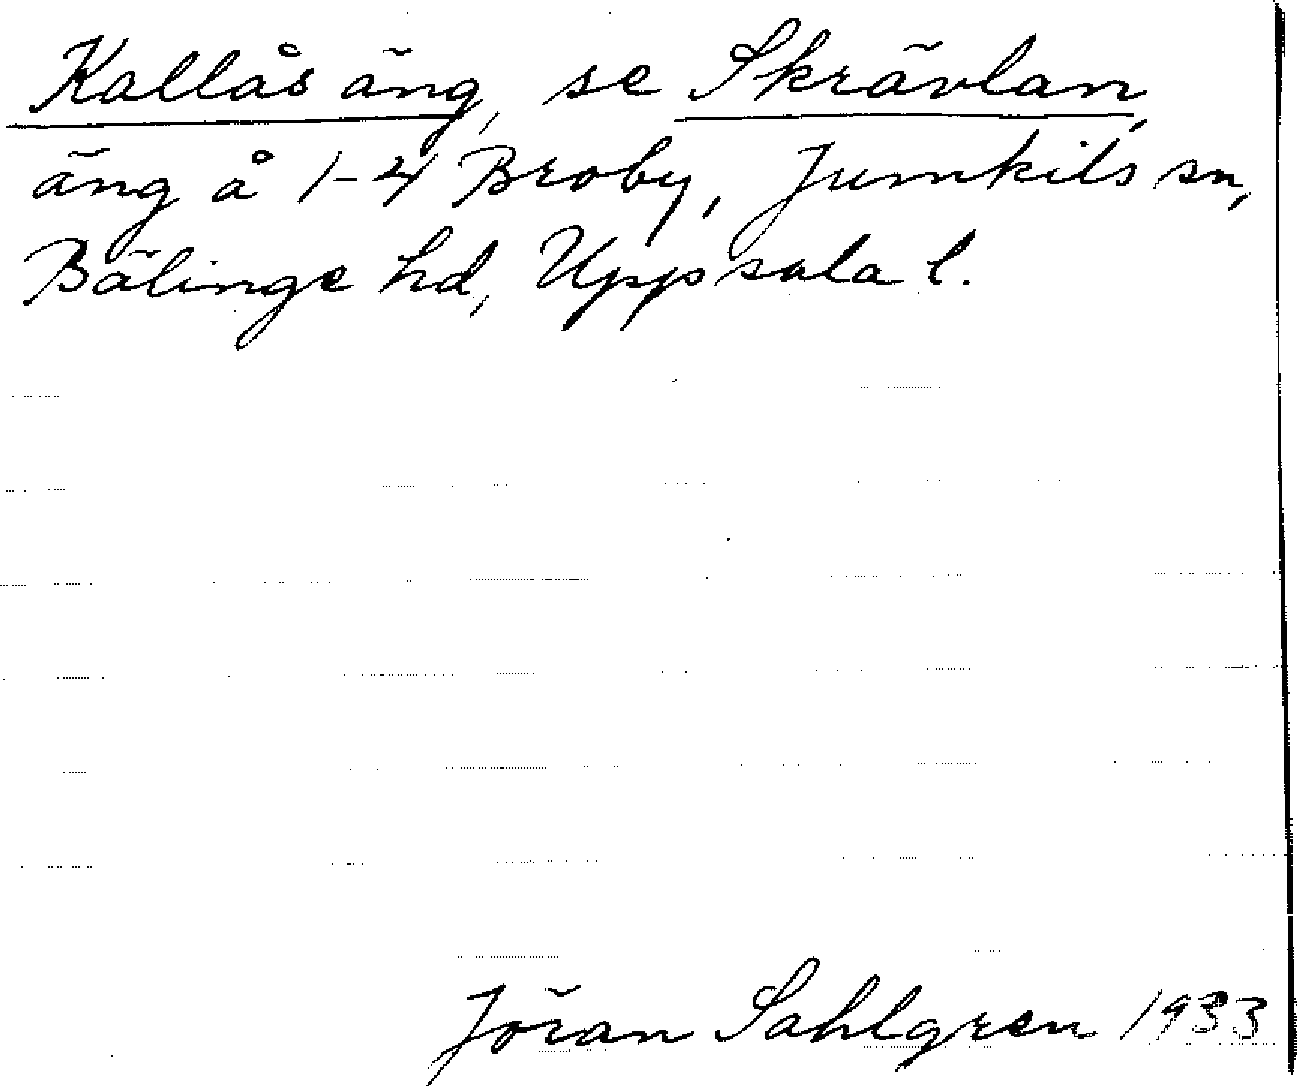 Kallås äng, se Skrävlan,
äng å 1-4 Broby, Jumkils sn,
Bälinge hd, Uppsala l.
Jöran Sahlgren 1933